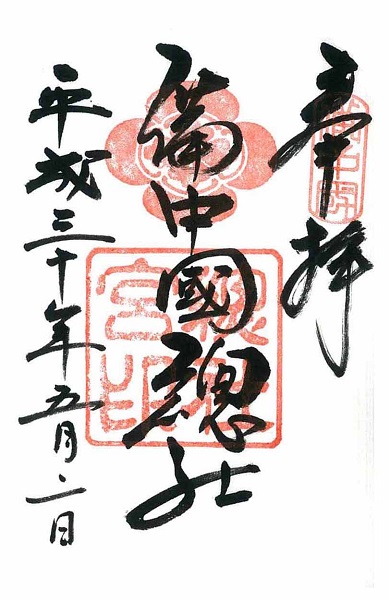 奉拝
備中國總社
總社
宮印
平成三十年五月二日